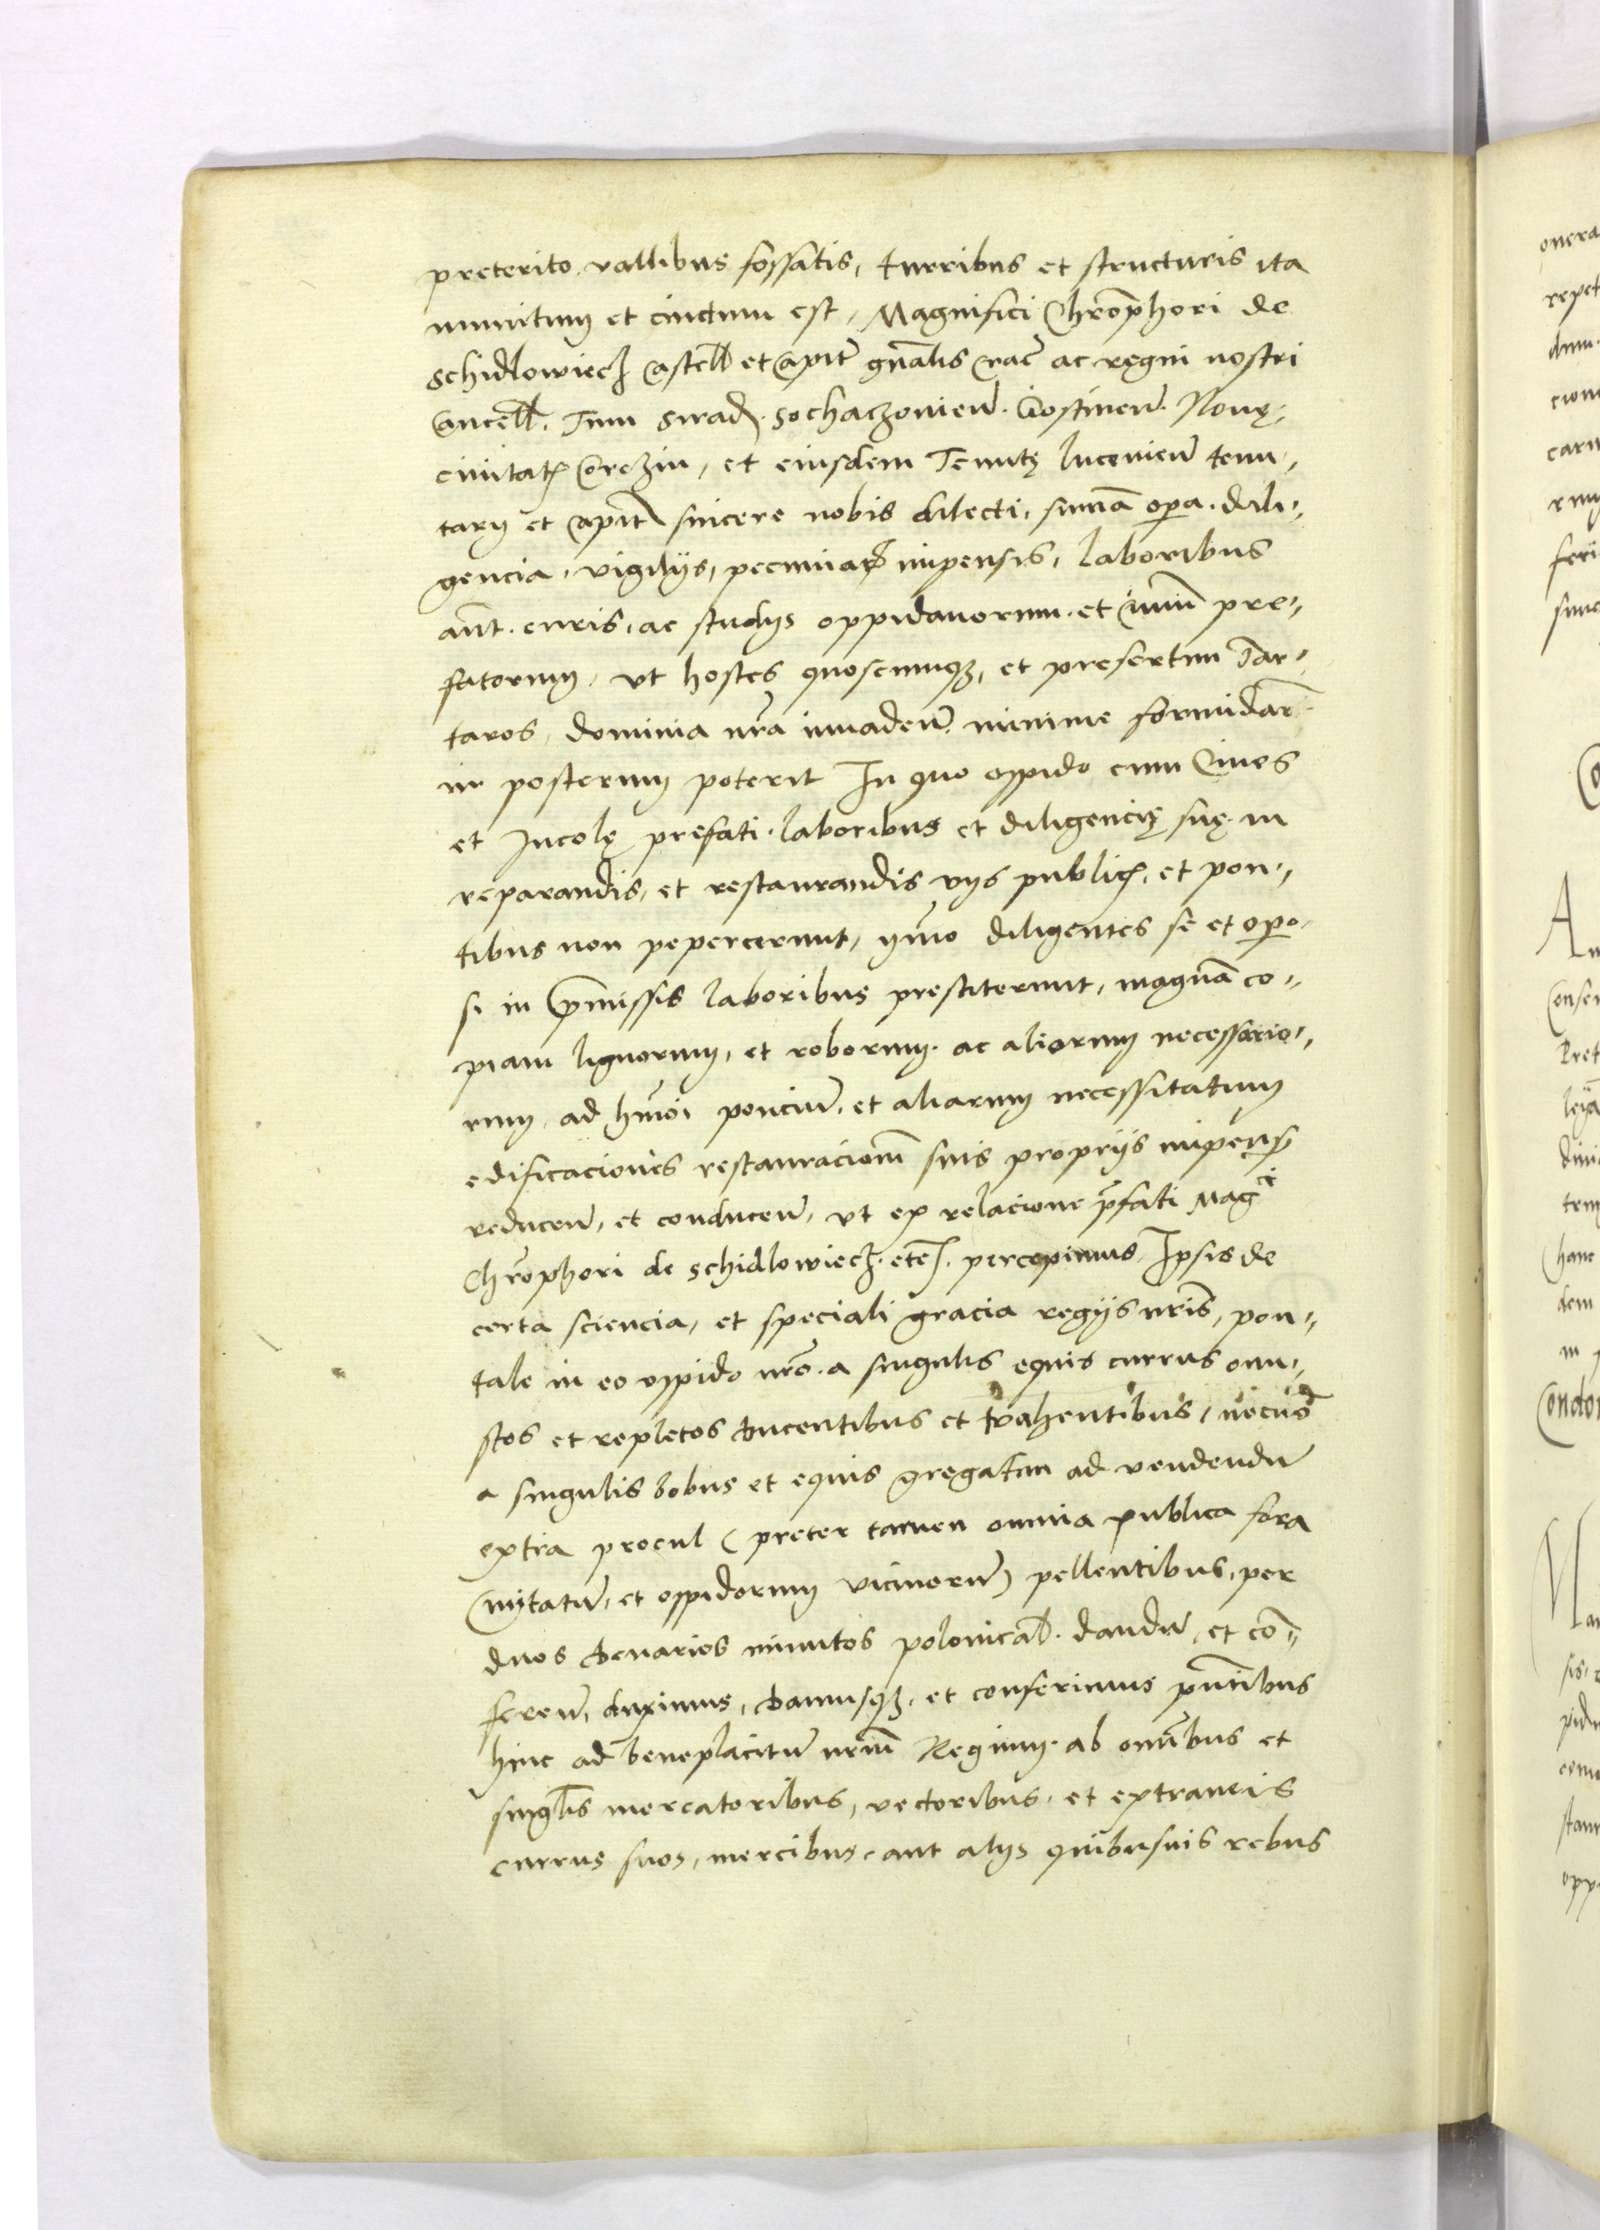 preterito vallibus fossatis, turribus et structuris ita
munitum et cinctum est, Magnifici Chrophori de
Schidlowiecz Castell et Capit gnalis Crac ac regni nostri
Cancell. Tum Sirad. Sochaczovien. Gostinen. Novę
civitatis Corczin, et eiusdem Tenutę Lucovien tenu,,
tarii et Capit sincere nobis dilecti, suma opera. dili,,
gencia, vigiliis, pecuniarum impensis, laboribus
aut. curis, ac studiis oppidanorum. et Civium pre,,
fatorum, ut hostes quoscumque, et presertim Tar,,
taros, dominia nra invaden, minime formidare
in posterum poterit In quo oppido cum Cives
et Incolę prefati. laboribus et diligencię suę. in
reparandis, et restaurandis viis publicis, et pon,,
tibus non pepercerunt, ymo diligentes se et opero
si in premissis laboribus prestiterunt, magna co,,
piam lignorum, et roborum. ac aliorum necessario,,
rum, ad hmoi poncium, et aliarum necessitatum
edificaciones restauraciom suis propriis impensis
reducen, et conducen, ut ex relacione prefati Mag ci
Chrophori de Schidlowiecz. etc. percepimus, Ipsis de
certa sciencia, et speciali gracia regiis nris, pon,,
tale in eo oppido nro. a singulis equis currus onu,,
stos et repletos ducentibus et trahentibus, necno
a singulis bobus et equis gregatim ad vendendum
extra procul (preter tamen omnia publica fora
Civitatum, et oppidorum vicinorum) pellentibus, per
duos denarios minutos polonical. dandum, et con,,
feren, duximus, damusque, et conferimus pntibus
hinc ad beneplacitum nrum Regium. ab omnibus et
singlis mercatoribus, vectoribus, et extraneis
currus suos, mercibus, aut aliis quibusvis rebus